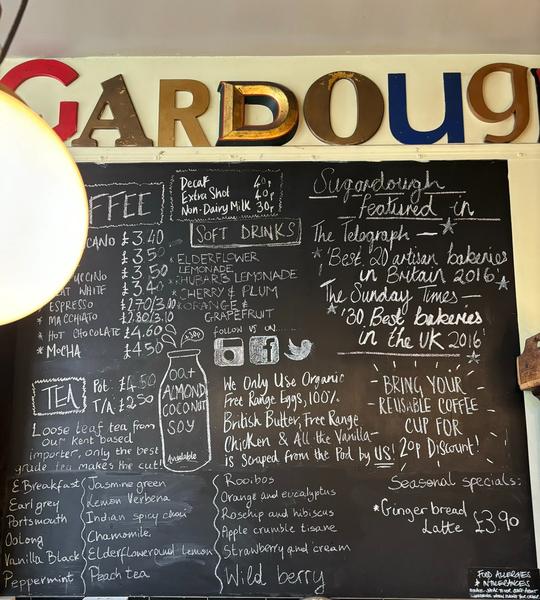 GARDOUG
FFEE
CANO £3.40
£3.50
UCCINO £3.50
AT WHITE £3.40
* ESPRESSO £2.70/3.10
* MACCHIATO £2.80/3.10
* HOT CHOCOLATE £4.60
* MOCHA £4.50
Decaf 40p
Extra Shot 40p
Non-Dairy Milk 30p
SOFT DRINKS
* ELDERFLOWER
LEMONADE
* HUBARB LEMONADE
* CHERRY & PLUM
* ORANGE &
GRAPEFRUIT
FOLLOW US ON.....
Sugardough
featured in
The Telegraph —
'Best 20 artisan bakeries
in Britain 2016'
The Sunday Times —
'30 Best bakeries
in the UK 2016'
TEA
Pot £4.50
T/A £2.50
Loose leaf tea from
our Kent based
importer, only the best
grade tea makes the cut!
ALMOND
COCONUT
SOY
Available
We Only Use Organic
Free Range Eggs, 100%
British Butter, Free Range
Chicken & All the Vanilla
is Scraped from the Pod by US!
BRING YOUR
REUSABLE COFFEE
CUP FOR
20p Discount!
E Breakfast
Earl grey
Portsmouth
Oolong
Vanilla Black
Peppermint
Jasmine green
Lemon Verbena
Indian spicy chai
Chamomile
Elderflower and lemon
Peach tea
Rooibos
Orange and eucalyptus
Rosehip and hibiscus
Apple crumble tisane
Strawberry and cream
Wild berry
Seasonal specials:
*Gingerbread
Latte £3.90
FOOD ALLERGIES
& INTOLERANCES